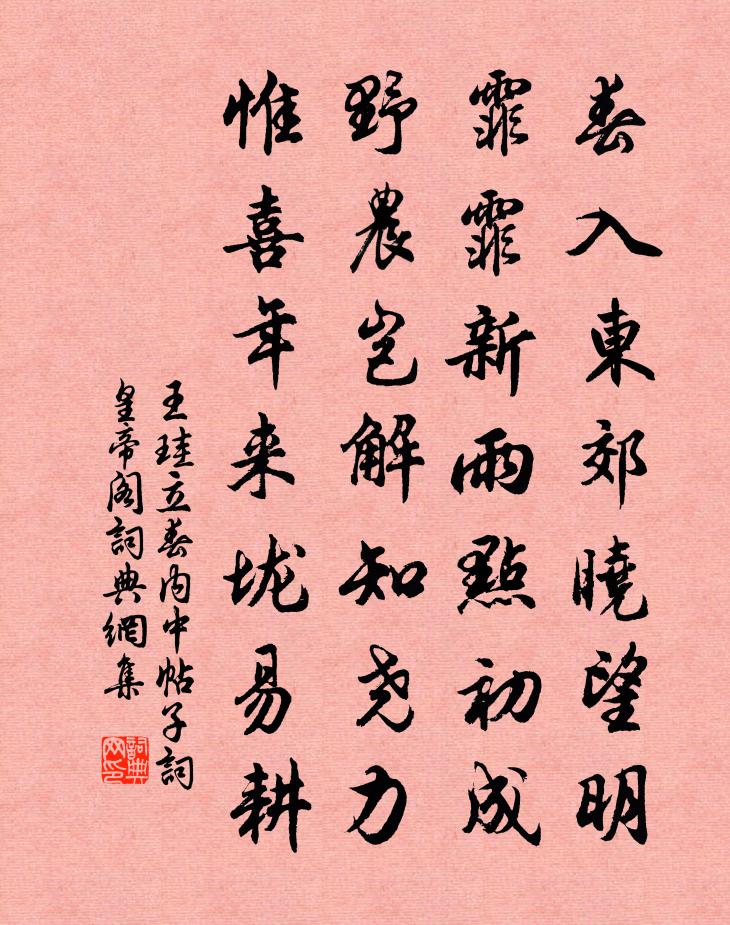 春入東郊曉望明
霏霏新雨點初成
野農豈解知尧力
惟喜年来垅易耕
王珪立春内中帖子詞
皇帝阁詞典網集
詞典网印